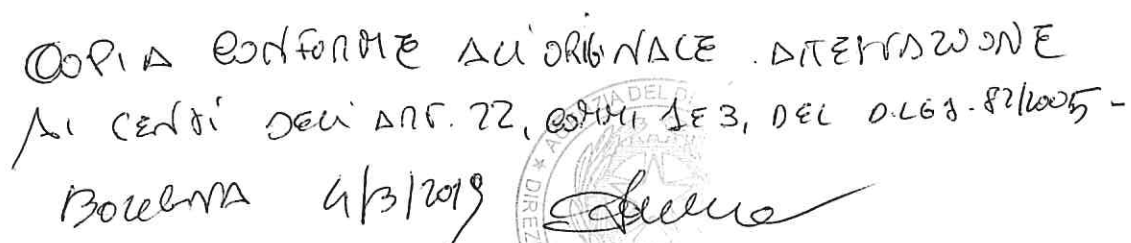 COPIA CONFORME ALL'ORIGINALE. ATTESTAZIONE
AI CENSI DELL'ART. 22, COMMI 1 E 3, DEL D.LEG. 82/2005 -
BOLOGNA 4/3/2019
AGENZIA DEL D
DIREZ